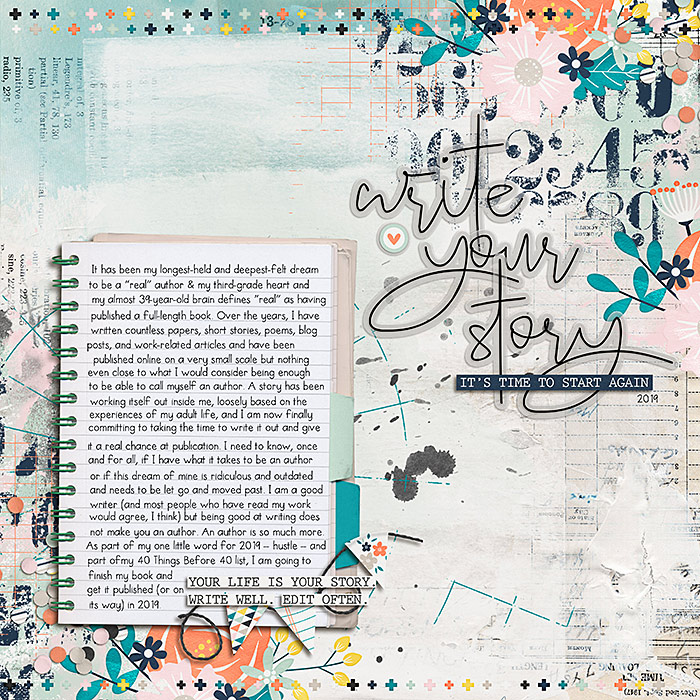 13-70
integral of 3
Legendre's, 173
linear, 41, 78, 130
partial (see Partial
tion)
primitive of 3
radio, 235
2345
write
your
story
IT'S TIME TO START AGAIN
2019
It has been my longest-held and deepest-felt dream
to be a "real" author & my third-grade heart and
my almost 39-year-old brain defines "real" as having
published a full-length book. Over the years, I have
written countless papers, short stories, poems, blog
posts, and work-related articles and have been
published online on a very small scale but nothing
even close to what I would consider being enough
to be able to call myself an author. A story has been
working itself out inside me, loosely based on the
experiences of my adult life, and I am now finally
committing to taking the time to write it out and give
it a real chance at publication. I need to know, once
and for all, if I have what it takes to be an author
or if this dream of mine is ridiculous and outdated
and needs to be let go and moved past. I am a good
writer (and most people who have read my work
would agree, I think) but being good at writing does
not make you an author. An author is so much more.
As part of my one little word for 2019 -- hustle -- and
part of my 40 Things Before 40 list, I am going to
finish my book and
get it published (or on
its way) in 2019.
YOUR LIFE IS YOUR STORY.
WRITE WELL. EDIT OFTEN.